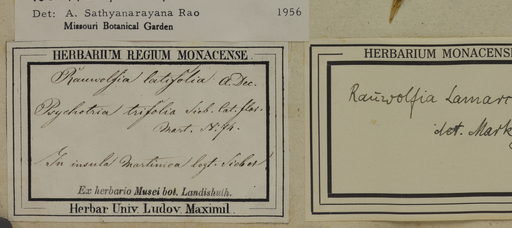 Det: A. Sathyanarayana Rao 1956
Missouri Botanical Garden
HERBARIUM REGIUM MONACENSE.
Rauwolfia latifolia A. Dec.
Psychotria trifolia Sieb. lat. flor.
Mart. N. 74.
In insula Martinica legt. Sieber!
Ex herbario Musei bot. Landishuth.
Herbar Univ. Ludov. Maximil.
HERBARIUM MONACENS
Rauwolfia Lamarc
det. Mark